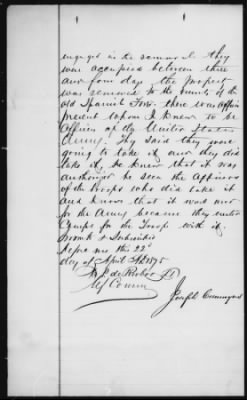 engaged in the removal they
was occupied between three
and four days the
was removed to the
old Spanish Fort. there was officers
present whom I knew to be
Officers of the United States
Army. They said they were
going to take it and they did
take it, he knew that it was
he seen the Officers
of the Troops who did take it
and knows that it was used
for the Army because they
Camps for the Troops with it.
Sworn & Subscribed
before me this 22d
day of April AD 1875
US Comm
Joseph